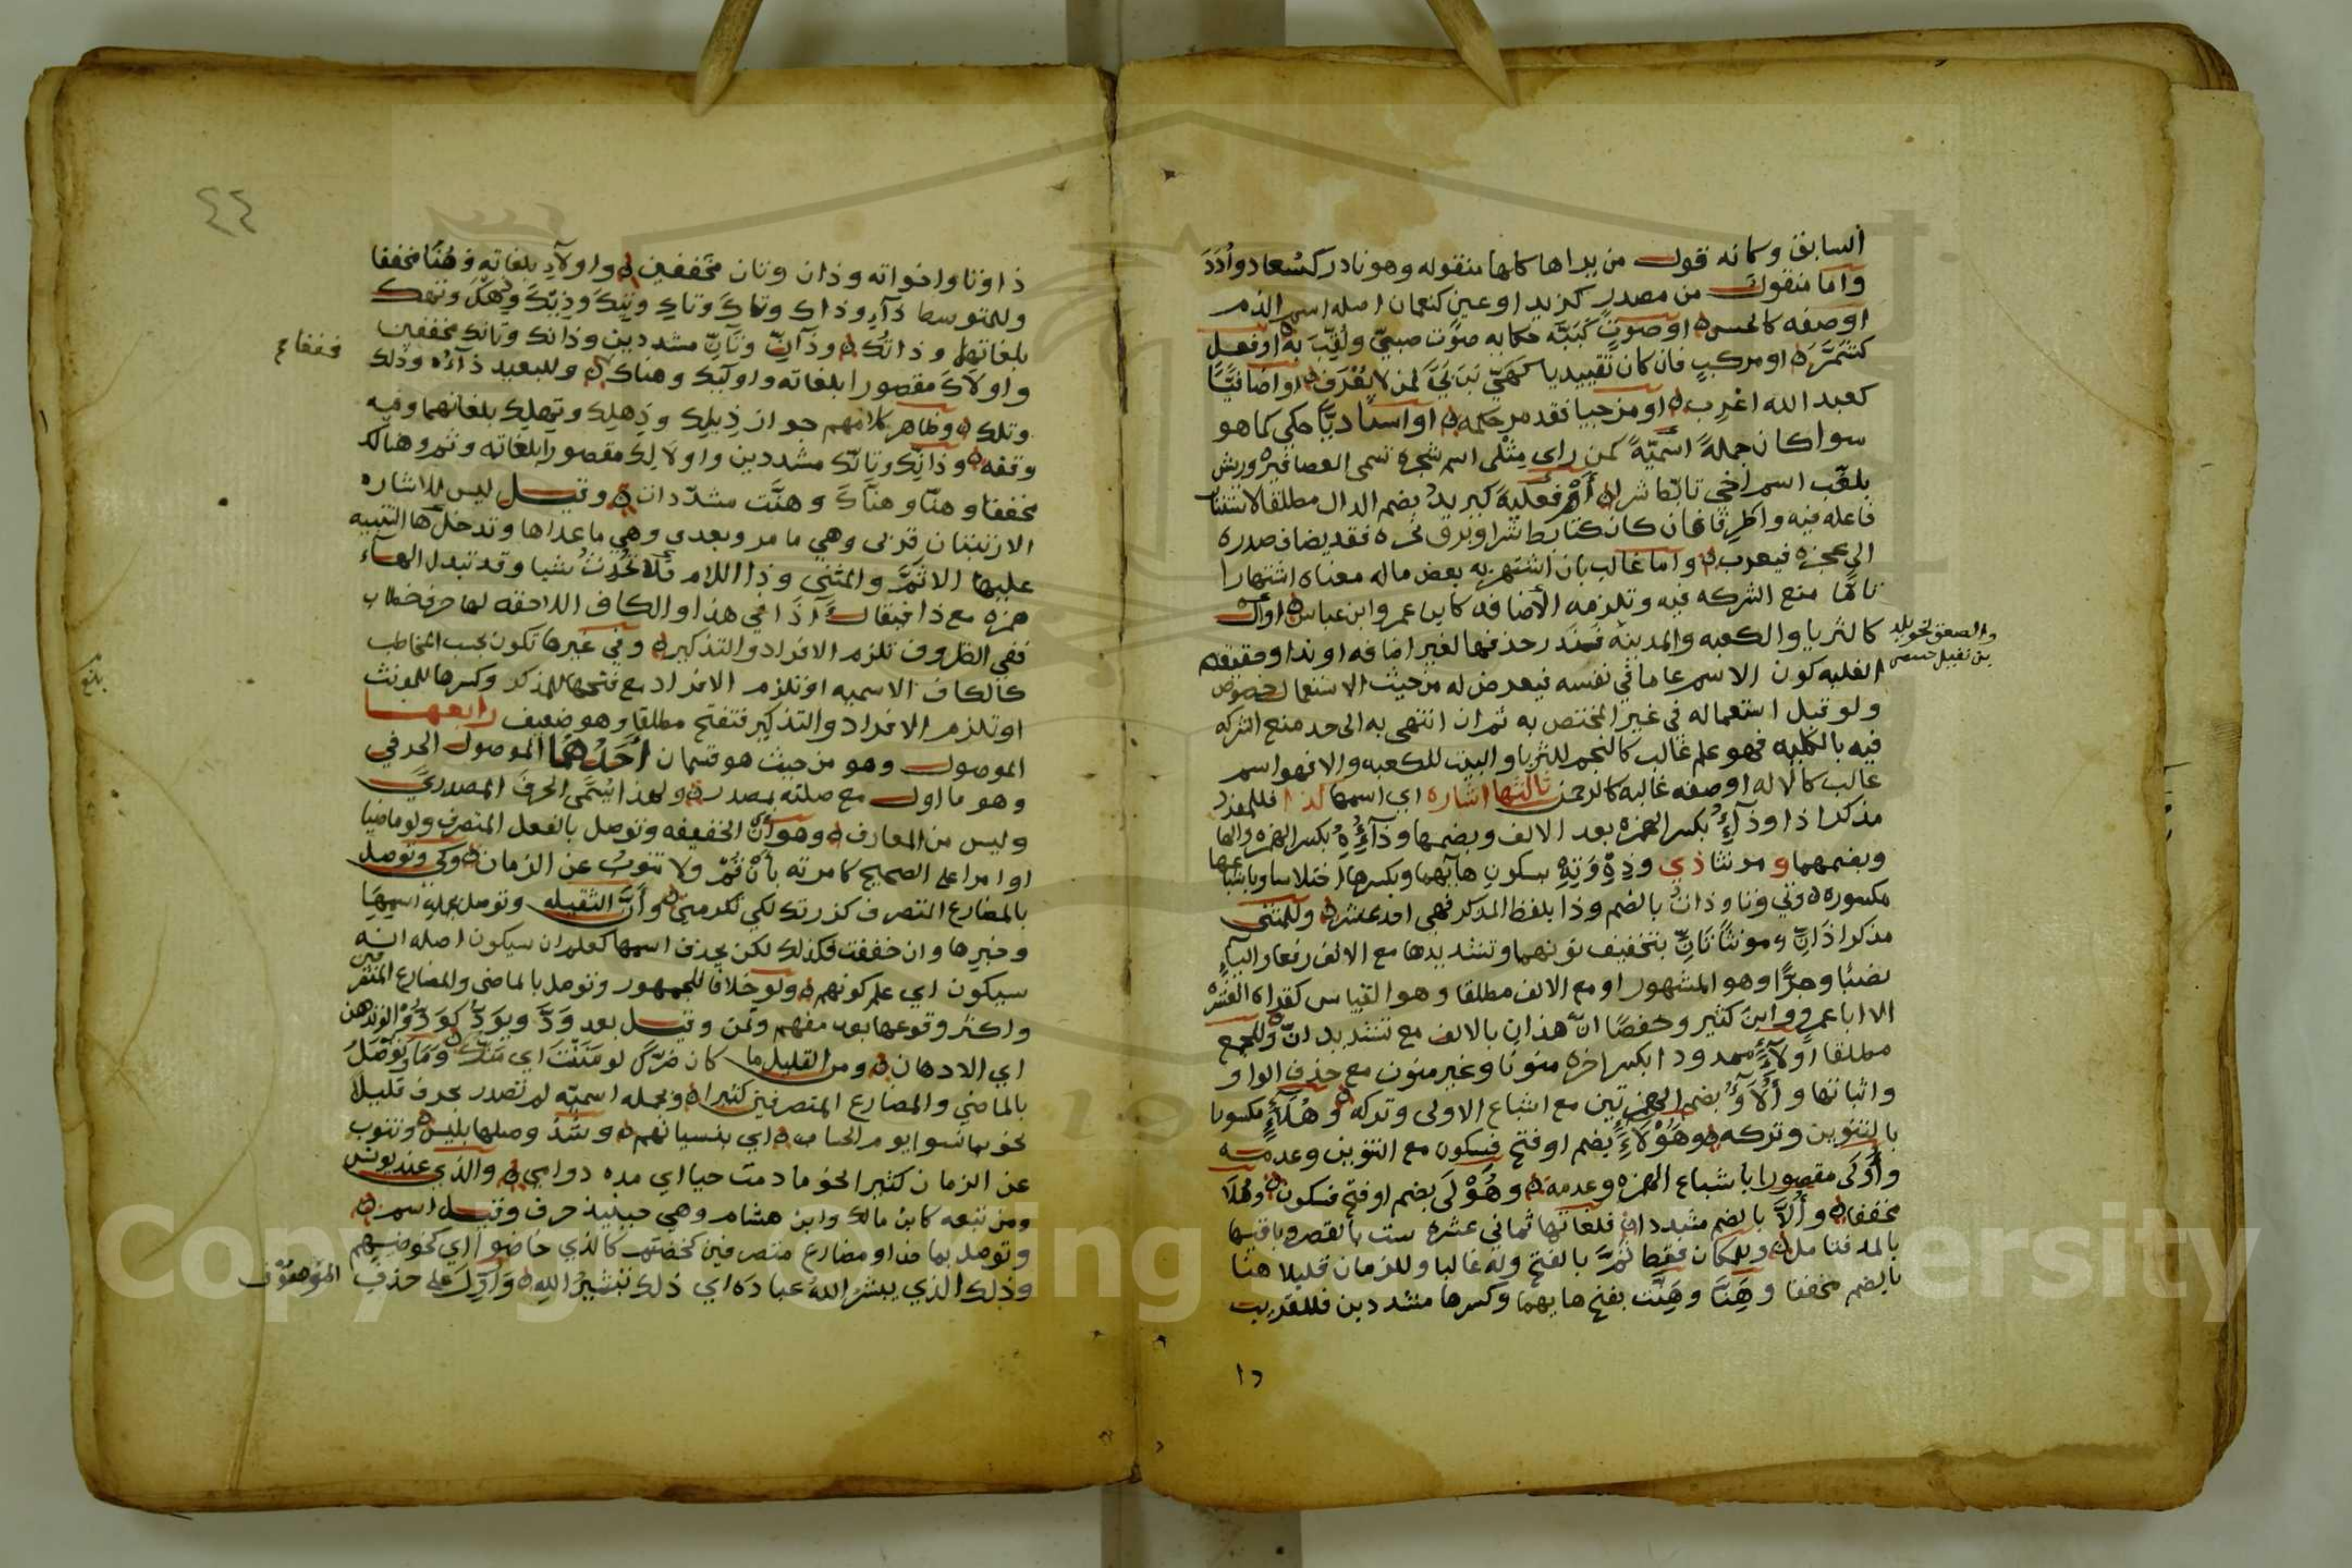 السابق وكانه قول من يراها كلها منقوله وهو نادر كسعاد وأدد
واما منقول من مصدر كزيد او عين كنعمان اصله اسم الدم
او صفه كالحسن او صوت كببه حكايه صوت صبي ولقب به او فعل
كشمر او مركب فان كان تقييديا لمن لا يعرف او اضافيا
كعبد الله اعرب او مزجيا فقد مر حكمه او اسناديا حكي كما هو
سوا كان جملة اسمية كمن راى مثلى اسم شجره تسمى العصافيره وريش
بلغب اسم اخي تابط شرا أم فعلية كيزيد بضم الدال مطلقا لاستتار
فاعله فيه واطرقا فان كان كتابط شرا وبرق نحره فقد يضاف صدره
الى عجزه فيعرب واما غالب بان اشتهر به بعض ماله معناه اشتهارا
تاما منع الشركه فيه وتلزمه الاضافه كابن عمر وابن عباس او أل
كالثريا والكعبه والمدينه فندر حذفها لغير اضافه او ندا وحقيقه
والصعق لخويلد
بن نفيل
الغلبه كون الاسم عاما في نفسه فيعرض له من حيث الاستعمال خصوص
ولو قبل استعماله في غير المختص به ثم ان انتهى به الى حد منع الشركه
فيه بالكليه فهو علم غالب كالنجم للثريا والبيت للكعبه والا فهو اسم
غالب كالاله او صفه غالبه كالرحمن ثالثها اشاره اي اسمها كذا فللمفرد
مذكرا ذا وذآء بكسر الهمزه بعد الالف وبضمها وذآؤه بكسر الهمزه والها
وبضمهما و مونثا ذي وذه وته بسكون هائهما وبكسرها اختلاسا وباشباعها
مكسوره وتي وتا وذات بالضم وذا بلفظ المذكر فهي احد عشر وللمثنى
مذكرا ذان ومونثا تان بتخفيف نونهما وتشديدها مع الالف رفعا واليآء
نصبا وجرا وهو المشهور او مع الالف مطلقا وهو القياس كقراه العشره
الا ابا عمرو وابن كثير وحفصا ان هذان بالالف مع تشديد ان وللجمع
مطلقا أولآء ممدودا بكسر اخره منونا وغير منون مع حذف الواو
واثباتها و ألآؤ بضم الهمزتين مع اشباع الاولى وتركه وهلآء مكسورا
بالتنوين وتركه وهؤلاء بضم او فتح فسكون مع التنوين وعدمه
وأولى مقصورا باشباع الهمزه وعدمه وهؤلى بضم او فتح فسكون وهلا
مخففا وألا بالضم مشددا فلغاتها ثماني عشره ست بالقصر وباقيها
بالمد فتامل وللمكان فقط ثم بالفتح وله غالبا وللزمان قليلا هنا
بالضم مخففا وهنا وهنت بفتح هايهما وكسرها مشددين فللقريب
١٥
٤٤
ذا وتا واخواته وذان وتان مخففين واولآء بلغاته وهنا مخففا
وللمتوسط ذآء وذاك وتاك وتاك وتيك وذيك وتهك
بلغاتها وذاتك وذآن وتآن مشددين وذانك وتانك مخففين
واولاك مقصورا بلغاته واوليك وهناك وللبعيد ذآءه وذلك
وتلك وظاهر كلامهم جواز ذيلك وذهلك وتهلك بلغاتهما وفيه
وقفه وذانك وتانك مشددين واولالك مقصورا بلغاته وثم وهنالك
مخففا وهنا وهناك وهنت مشددات وقيل ليس للاشاره
الا رتبتان قربى وهي ما مر وبعدى وهي ما عداها وتدخل ها التنبيه
عليها الا ثم والمثنى وذا اللام فلا تحدث شيا وقد تبدل الهآء
همزه مع ذا فيقال آذا في هذا والكاف اللاحقه لها حرف خطاب
ففي الظروف تلزم الافراد والتذكير وفي غيرها تكون بحسب المخاطب
كالكاف الاسميه او تلزم الافراد مع فتحها للمذكر وكسرها للمونث
او تلزم الافراد والتذكير فتفتح مطلقا وهو ضعيف رابعها
الموصول وهو من حيث هو قسمان أحدهما الموصول الحرفي
وهو ما اول مع صلته بمصدر ولهذا يسمى الحرف المصدري
وليس من المعارف وهو أن الخفيفه وتوصل بالفعل المتصرف ولو ماضيا
او امرا على الصحيح كامرته بأن قم ولا تنوب عن الزمان وكي وتوصل
بالمضارع المتصرف كزرتك لكي تكرمني وأن الثقيله وتوصل بجملة اسمها
وخبرها وان خففت فكذلك لكن يحذف اسمها كعلم ان سيكون اصله انه
سيكون اي علم كونهم ولو خلافا للجمهور وتوصل بالماضي والمضارع المتصرفين
واكثر وقوعها بعد مفهم وتمن وقيل بعد ود ويود كودوا لو تدهن
اي الادهان ومن القليل ما كان ضرك لو مننت اي منك وما وتوصل
بالماضي والمضارع المتصرفين كثيرا وبجمله اسميه لم تصدر بحرف قليلا
نحو بما نسوا يوم الحساب اي بنسيانهم وشذ وصلها بليس وتنوب
عن الزمان كثيرا نحو ما دمت حيا اي مده دوامي والذي عند يونس
ومن تبعه كابن مالك وابن هشام وهي حينيذ حرف وقيل اسم
وتوصل بماض او مضارع متصرفين كخضتم كالذي خاضوا اي كخوضهم
وذلك الذي يبشر الله عباده اي ذلك تبشير الله وأول على حذف